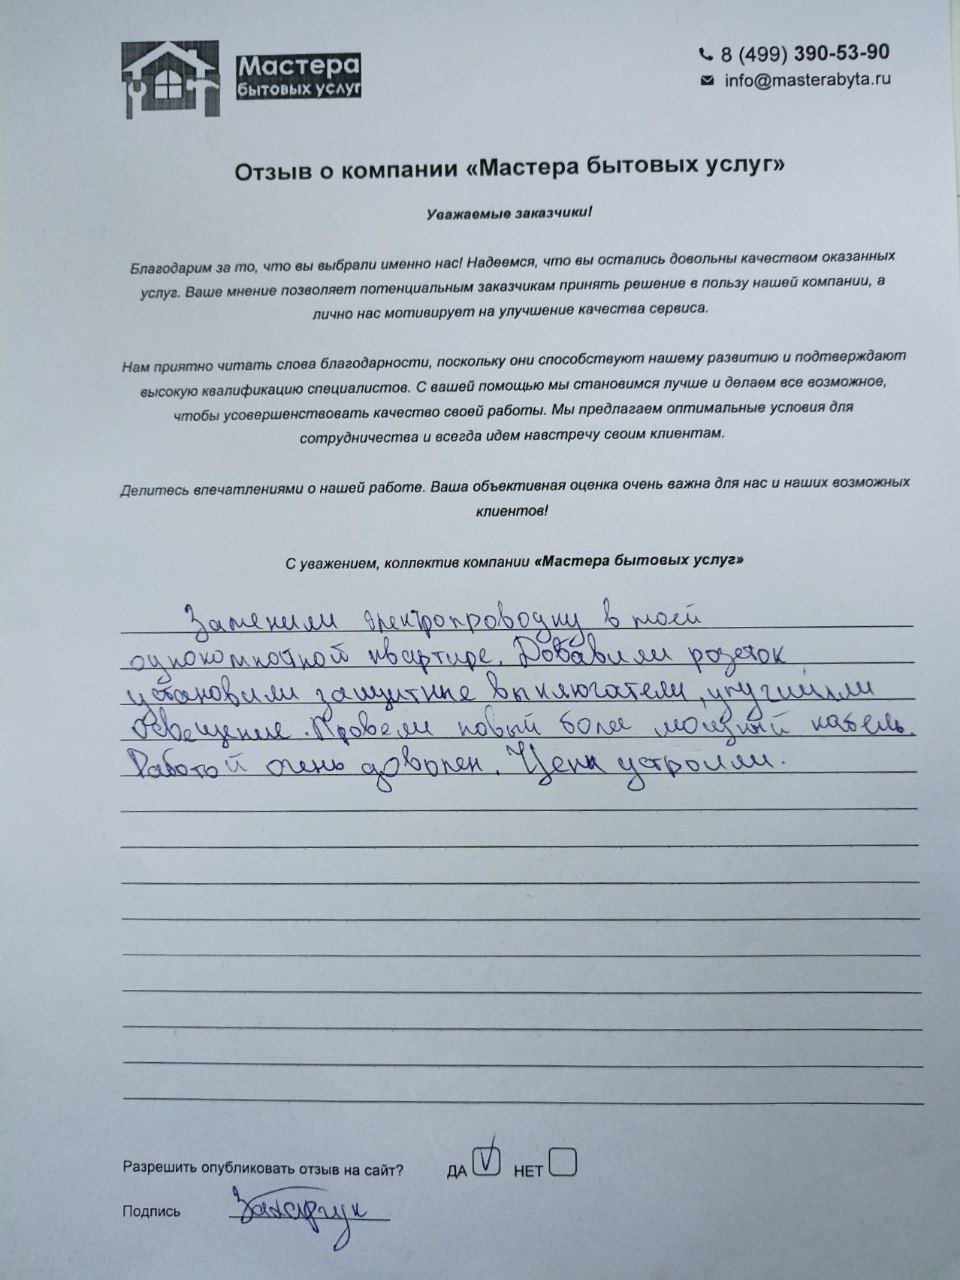 Мастера
бытовых услуг
8 (499) 390-53-90
info@masterabyta.ru
Отзыв о компании «Мастера бытовых услуг»
Уважаемые заказчики!
Благодарим за то, что вы выбрали именно нас! Надеемся, что вы остались довольны качеством оказанных
услуг. Ваше мнение позволяет потенциальным заказчикам принять решение в пользу нашей компании, а
лично нас мотивирует на улучшение качества сервиса.
Нам приятно читать слова благодарности, поскольку они способствуют нашему развитию и подтверждают
высокую квалификацию специалистов. С вашей помощью мы становимся лучше и делаем все возможное,
чтобы усовершенствовать качество своей работы. Мы предлагаем оптимальные условия для
сотрудничества и всегда идем навстречу своим клиентам.
Делитесь впечатлениями о нашей работе. Ваша объективная оценка очень важна для нас и наших возможных
клиентов!
С уважением, коллектив компании «Мастера бытовых услуг»
Заменили электропроводку в моей
однокомнатной квартире. Добавили розеток
установили защитные выключатели, улучшили
освещение. Провели новый более мощный кабель.
Работой очень доволен. Цены устроили.
Разрешить опубликовать отзыв на сайт? ДА НЕТ
Подпись Захарчук